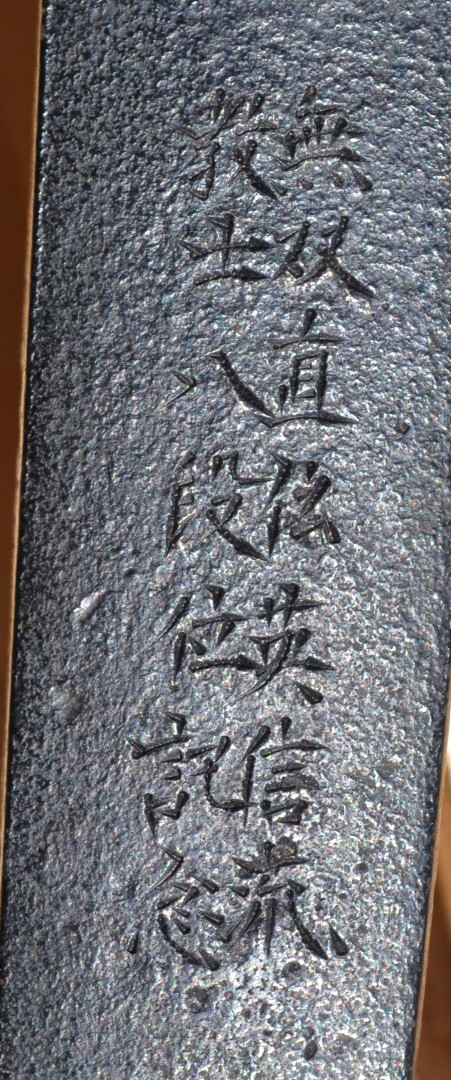 無双直伝英信流
教士八段位記念